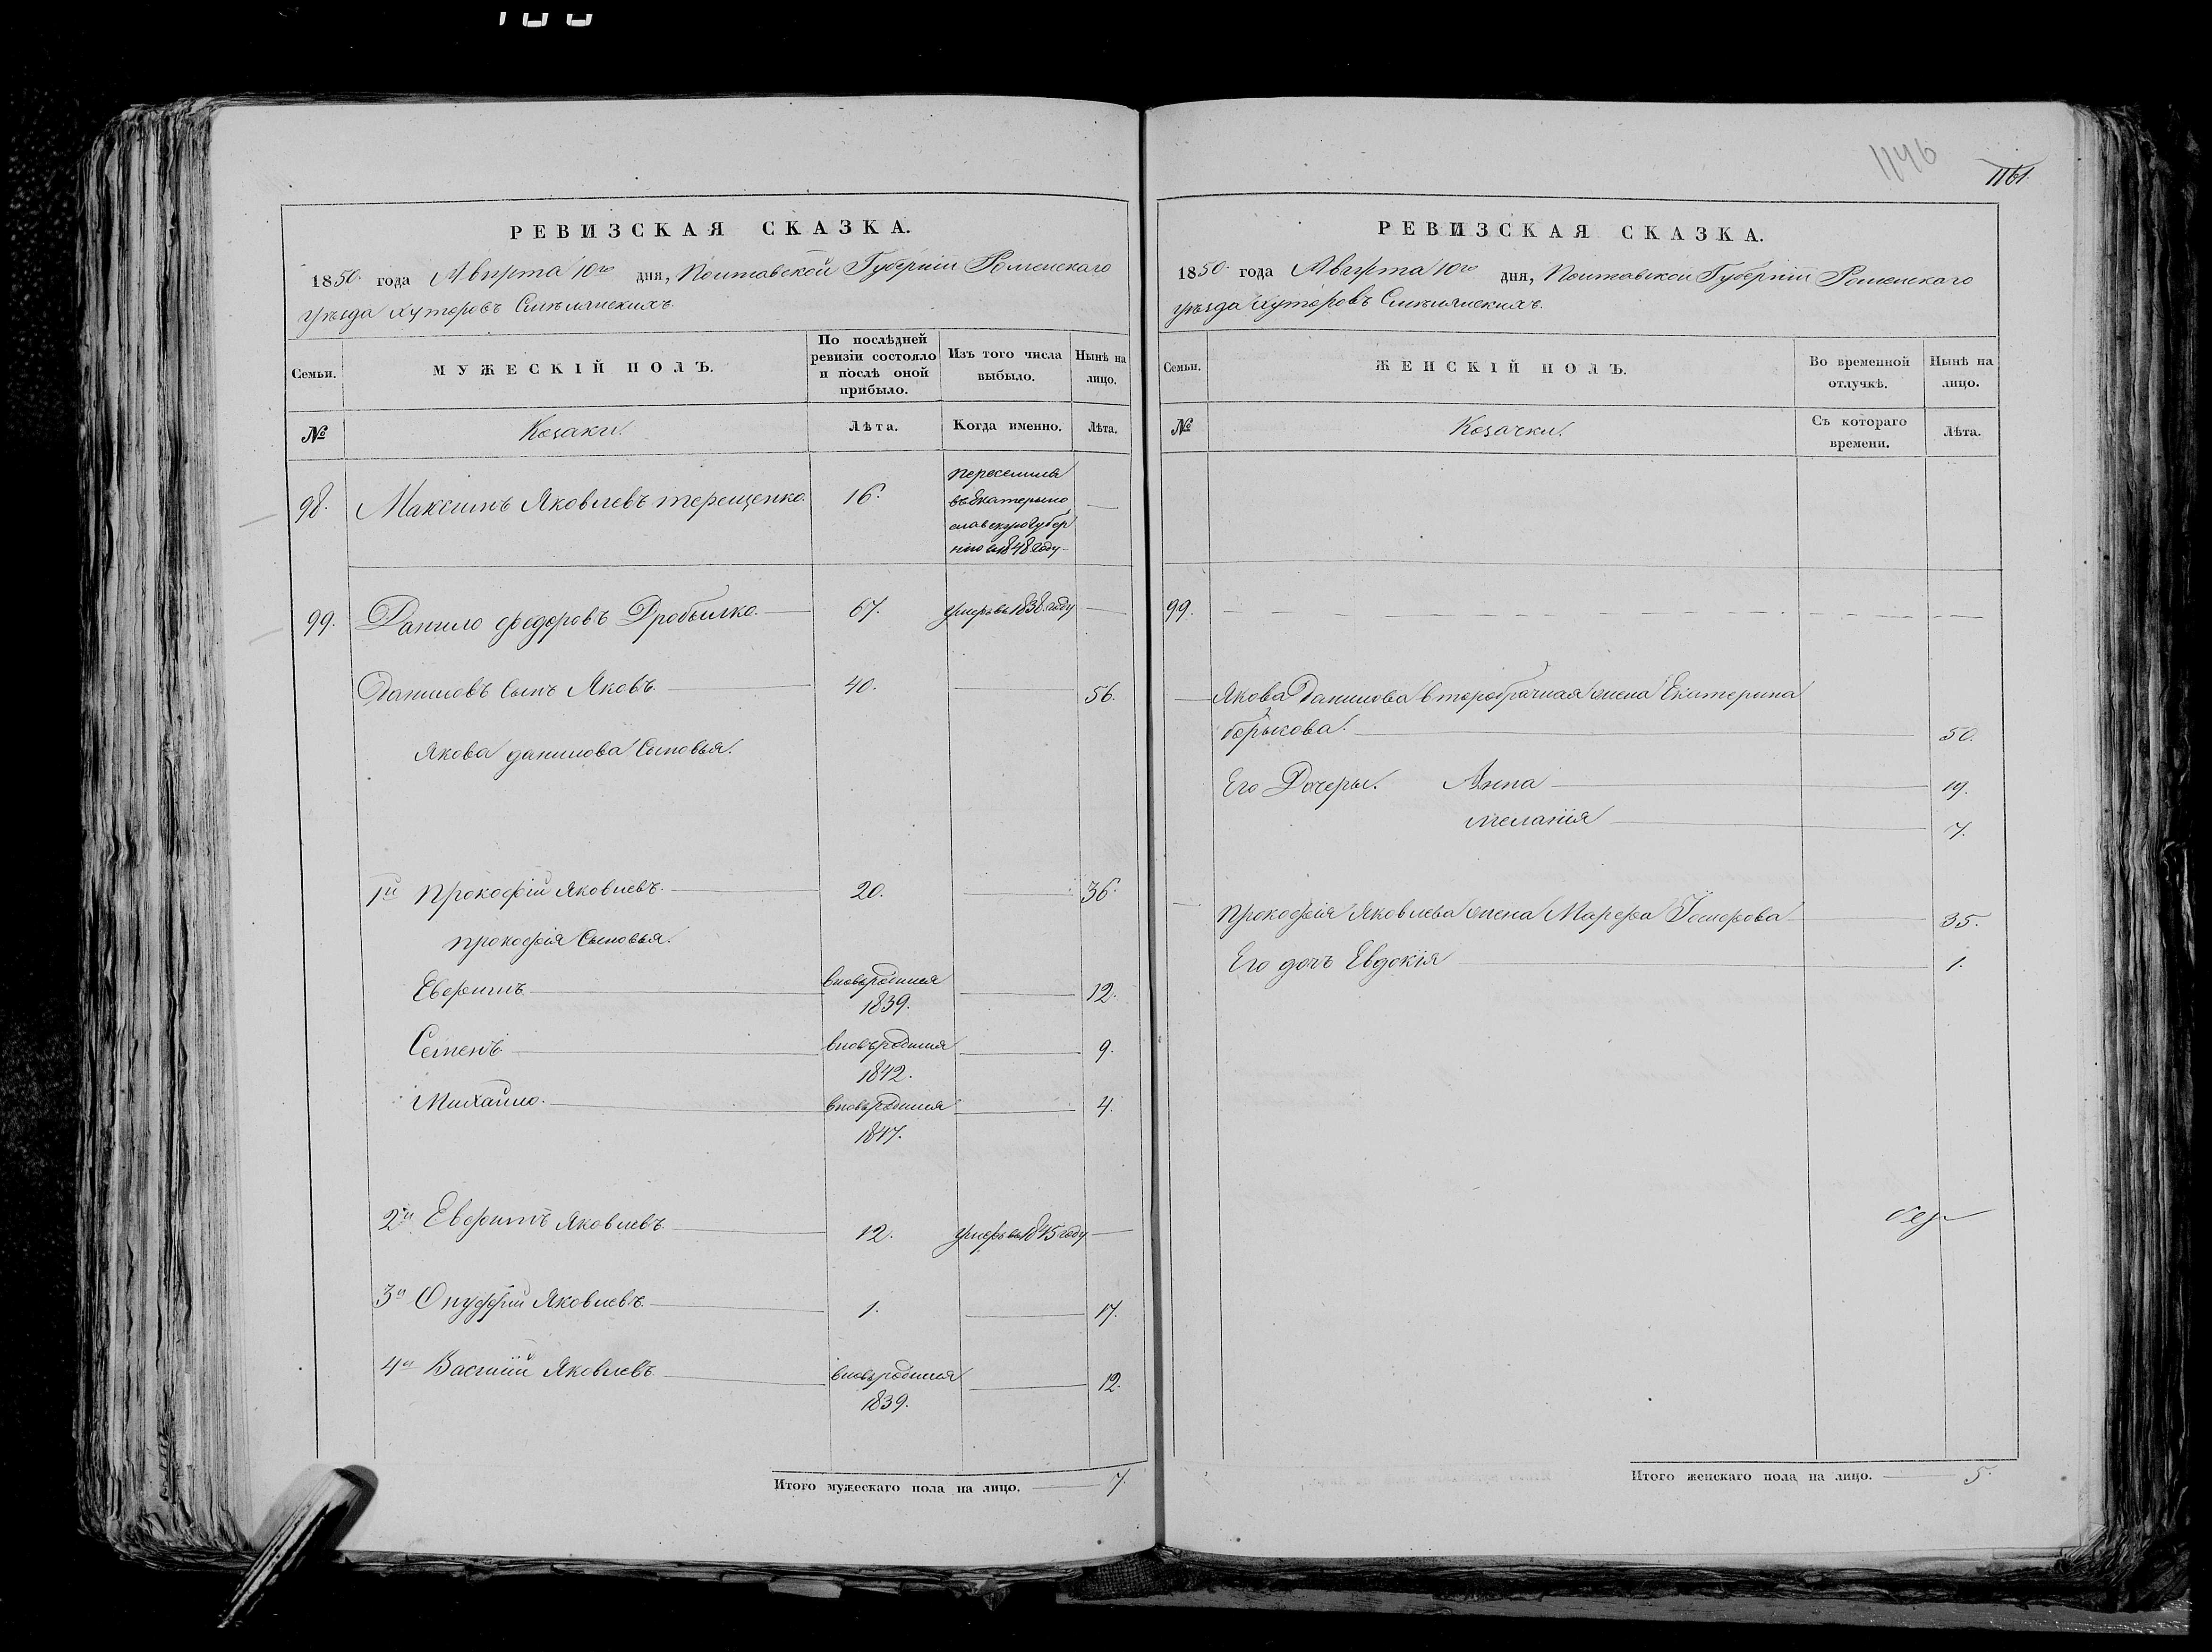 1146
1161.
РЕВИЗСКАЯ СКАЗКА.
1850. года Августа 10го дня, Полтавской Губерніи Роменскаго
уѣзда хуторовъ Смѣлянскихъ.
Семьи.
МУЖЕСКІЙ ПОЛЪ.
По послѣдней ревизіи состояло и послѣ оной прибыло.
Изъ того числа выбыло.
Нынѣ на лицо.
№
Козаки.
Лѣта.
Когда именно.
Лѣта.
98. Максимъ Яковлевъ терещенко. 16. —
въ Екатерино
славскую Губер
нію въ 1848 Году
99. Данило федоровъ Дробилко. 67. умеръ въ 1838 году —
Даниловъ Сынъ Яковъ. 40. — 56.
Якова данилова Сыновья.
1й Прокофій Яковлевъ. 20. — 36.
Прокофія Сыновья.
Евфимъ вновьродился — 12.
1839.
Семенъ вновьродился — 9.
1842.
Михайло. вновьродился — 4.
1847.
2й Евфимъ Яковлевъ 12. умеръ въ 1845 году —
3й Онуфрій Яковлевъ. 1. — 17.
4й Василій Яковлевъ вновьродился — 12.
1839.
Итого мужескаго пола на лицо. — 7.
РЕВИЗСКАЯ СКАЗКА.
1850. года Августа 10го дня, Полтавской Губерніи Роменскаго
уѣзда хуторовъ Смѣлянскихъ.
Семьи.
ЖЕНСКІЙ ПОЛЪ.
Во временной отлучкѣ.
Нынѣ на лицо.
№
Козачки.
Съ котораго времени.
Лѣта.
99.
Якова Данилова второбрачная жена Екатерина
50.
Его Дочеры. Анна — 19.
Меланія — 7.
Прокофія Яковлева жена Марфа — 35.
Его дочь Евдокія — 1.
Итого женскаго пола на лицо. — 5.